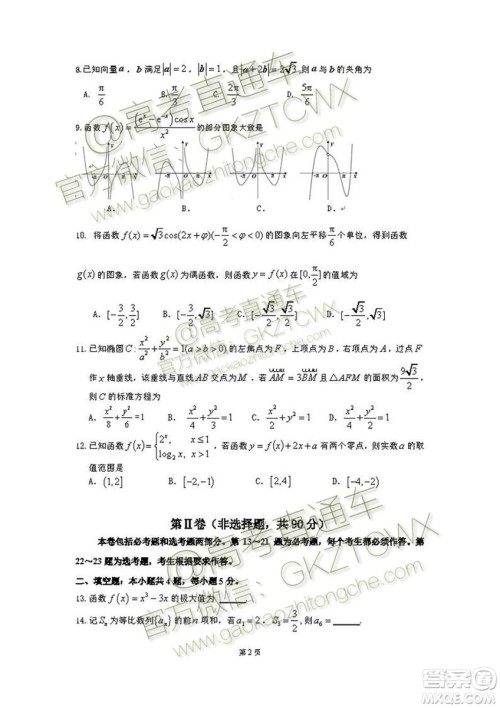 8.已知向量a，b满足|a|=2，|b|=1，且|a+2b|=2√3，则a与b的夹角为
A. π/6 B. π/3 C. 2π/3 D. 5π/6
9.函数f(x)=(e^x-e^{-x})cosx/x^2的部分图象大致是
A. B. C. D.
10. 将函数f(x)=√3cos(2x+φ)(-π/2<φ<0)的图象向左平移π/6个单位，得到函数
g(x)的图象，若函数g(x)为偶函数，则函数y=f(x)在[0,π/2]的值域为
A．[-3/2,3/2] B．[-3/2,√3] C．[-√3/2,√3/2] D．[-√3/2,√3]
11.已知椭圆C:x^2/a^2+y^2/b^2=1(a>b>0)的左焦点为F，上顶点为B，右顶点为A，过点
作x轴垂线，该垂线与直线AB交点为M，若AM=3BM且△AFM的面积为9√3/2，
则C的标准方程为
A. x^2/8+y^2/6=1 B. x^2/4+y^2/3=1 C. x^2/4+y^2/2=1 D. x^2/3+y^2/2=1
12.已知函数f(x)={2^x, x≤1 log_2 x, x>1，若函数y=f(x)+2x+a有两个零点，则实数a的取
值范围是
A．(1,2] B．[-2,-1) C．[2,4] D．[-4,-2)
第Ⅱ卷（非选择题，共90分）
本卷包括必考题和选考题两部分．第13～21题为必考题，每个考生都必须作答．第
22～23题为选考题，考生根据要求作答．
二、填空题：本小题共4题，每小题5分．
13. 函数f(x)=x^3-3x的极大值为____．
14. 记S_n为等比数列{a_n}的前n项和，若a_1=2，S_3=3/2，则a_6=____．
第2页
@高考直通车
官方微信 GKZTCWX
www.gaokaozhitongche.com
@高考直通车
官方微信 GKZTCWX
@高考直通车
官方微信 GKZTCWX
www.gaokaozhitongche.com